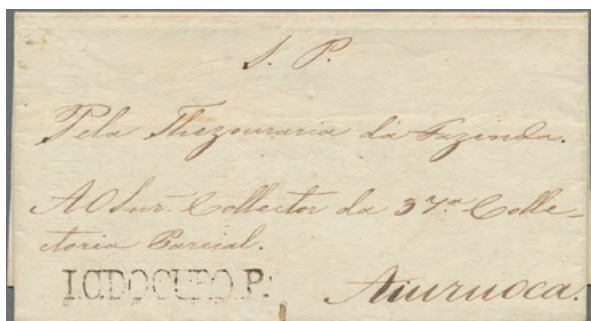 S. P.
Pela Thezouraria da Fazenda.
Ao Snr. Collector da 37.ª Colle-
ctoria Parcial.
I.C.DOOURO.P.
Aiuruoca.